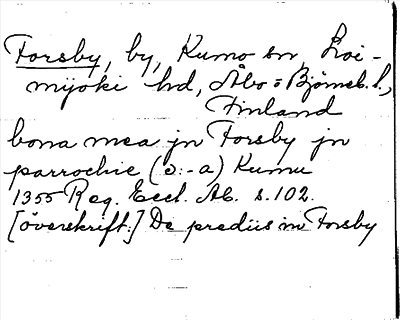 Forsby, by, Kumo sn, Loi-
mijoki hd, Åbo=Björneb. l.,
Finland
bona mea jn Forsby jn
parrochie (ɔ:-a) Kumu
1355 Reg. Eccl. Ab. s. 102.
[överskrift:] De prediis in Forsby